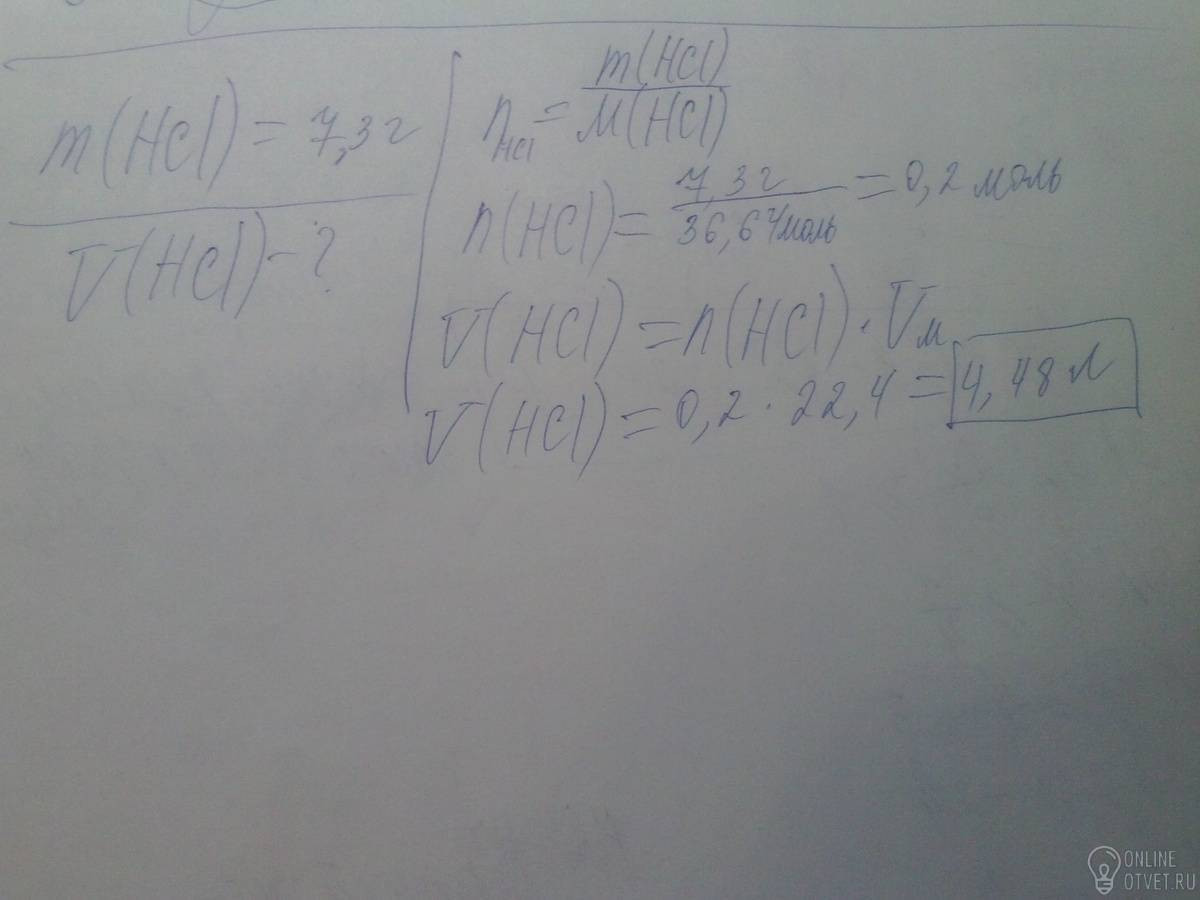 m(HCl) = 7,3 г
V(HCl) - ?
n HCl = m(HCl) / M(HCl)
n(HCl) = 7,3 г / 36,6 г/моль = 0,2 моль
V(HCl) = n(HCl) · Vм
V(HCl) = 0,2 · 22,4 = 4,48 л
ONLINE
OTVET.RU